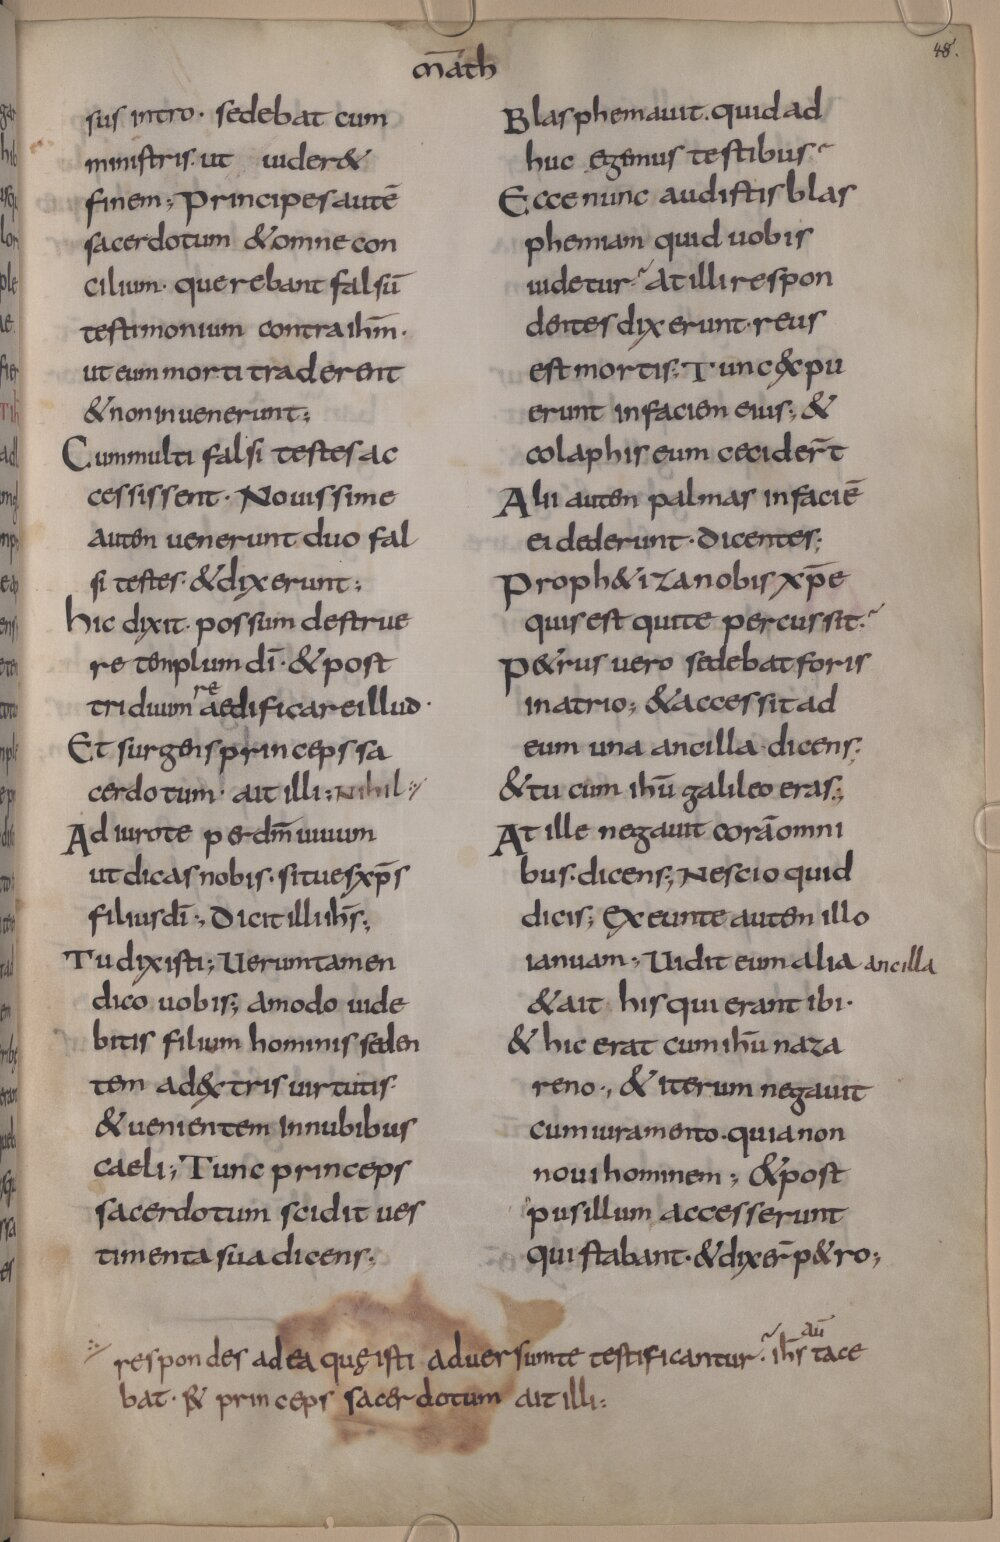 48.
m̅ath
sus intro · sedebat cum
ministris · ut uider&
finem ; Principes autē
sacerdotum & omne con
cilium · querebant falsū
testimonium contra ihm̅ ·
ut eum morti traderent
& non inuenerunt ;
Cum multi falsi testes ac
cessissent · Nouissime
autem uenerunt duo fal
si testes · & dixerunt ;
hic dixit · possum destrue
re templum dī · & post
triduum reaedificare illud ·
Et surgens princeps sa
cerdotum · ait illi ; Nihil ·//
Ad iurote per dm̅ uiuum
ut dicas nobis · si tu es xp̅s
filius dī ; Dicit illi ihs̅ ;
Tu dixisti ; Uerumtamen
dico uobis ; amodo uide
bitis filium hominis seden
tem ad&xtris uirtutis ·
& uenientem in nubibus
caeli ; Tunc princeps
sacerdotum scidit ues
timenta sua dicens ;
Blasphemauit · quid ad
huc egemus testibus ·~
Ecce nunc audistis blas
phemiam quid uobis
uidetur ·~ At illi respon
dentes dixerunt · reus
est mortis ; Tunc &xpu
erunt in faciem eius ; &
colaphis eum cecider̅t
Alii autem palmas in faciē
ei dederunt · Dicentes ;
Proph&iza nobis xp̅e
quis est qui te percussit ·~
P&rus uero sedebat foris
in atrio ; & accessit ad
eum una ancilla · dicens ;
& tu cum ihū galileo eras ;
At ille negauit corā omni
bus · dicens ; Nescio quid
dicis ; Exeunte autem illo
ianuam ; Uidit eum alia ancilla
& ait his qui erant ibi ·
& hic erat cum ihū naza
reno ; & iterum negauit
cum iuramento · quia non
noui hominem ; & post
pusillum accesserunt
qui stabant · & dixer̅ p&ro ;
·// respondes ad ea quę isti aduersum te testificantur ·~ ihs̅ aū tace
bat · & princeps sacerdotum ait illi :